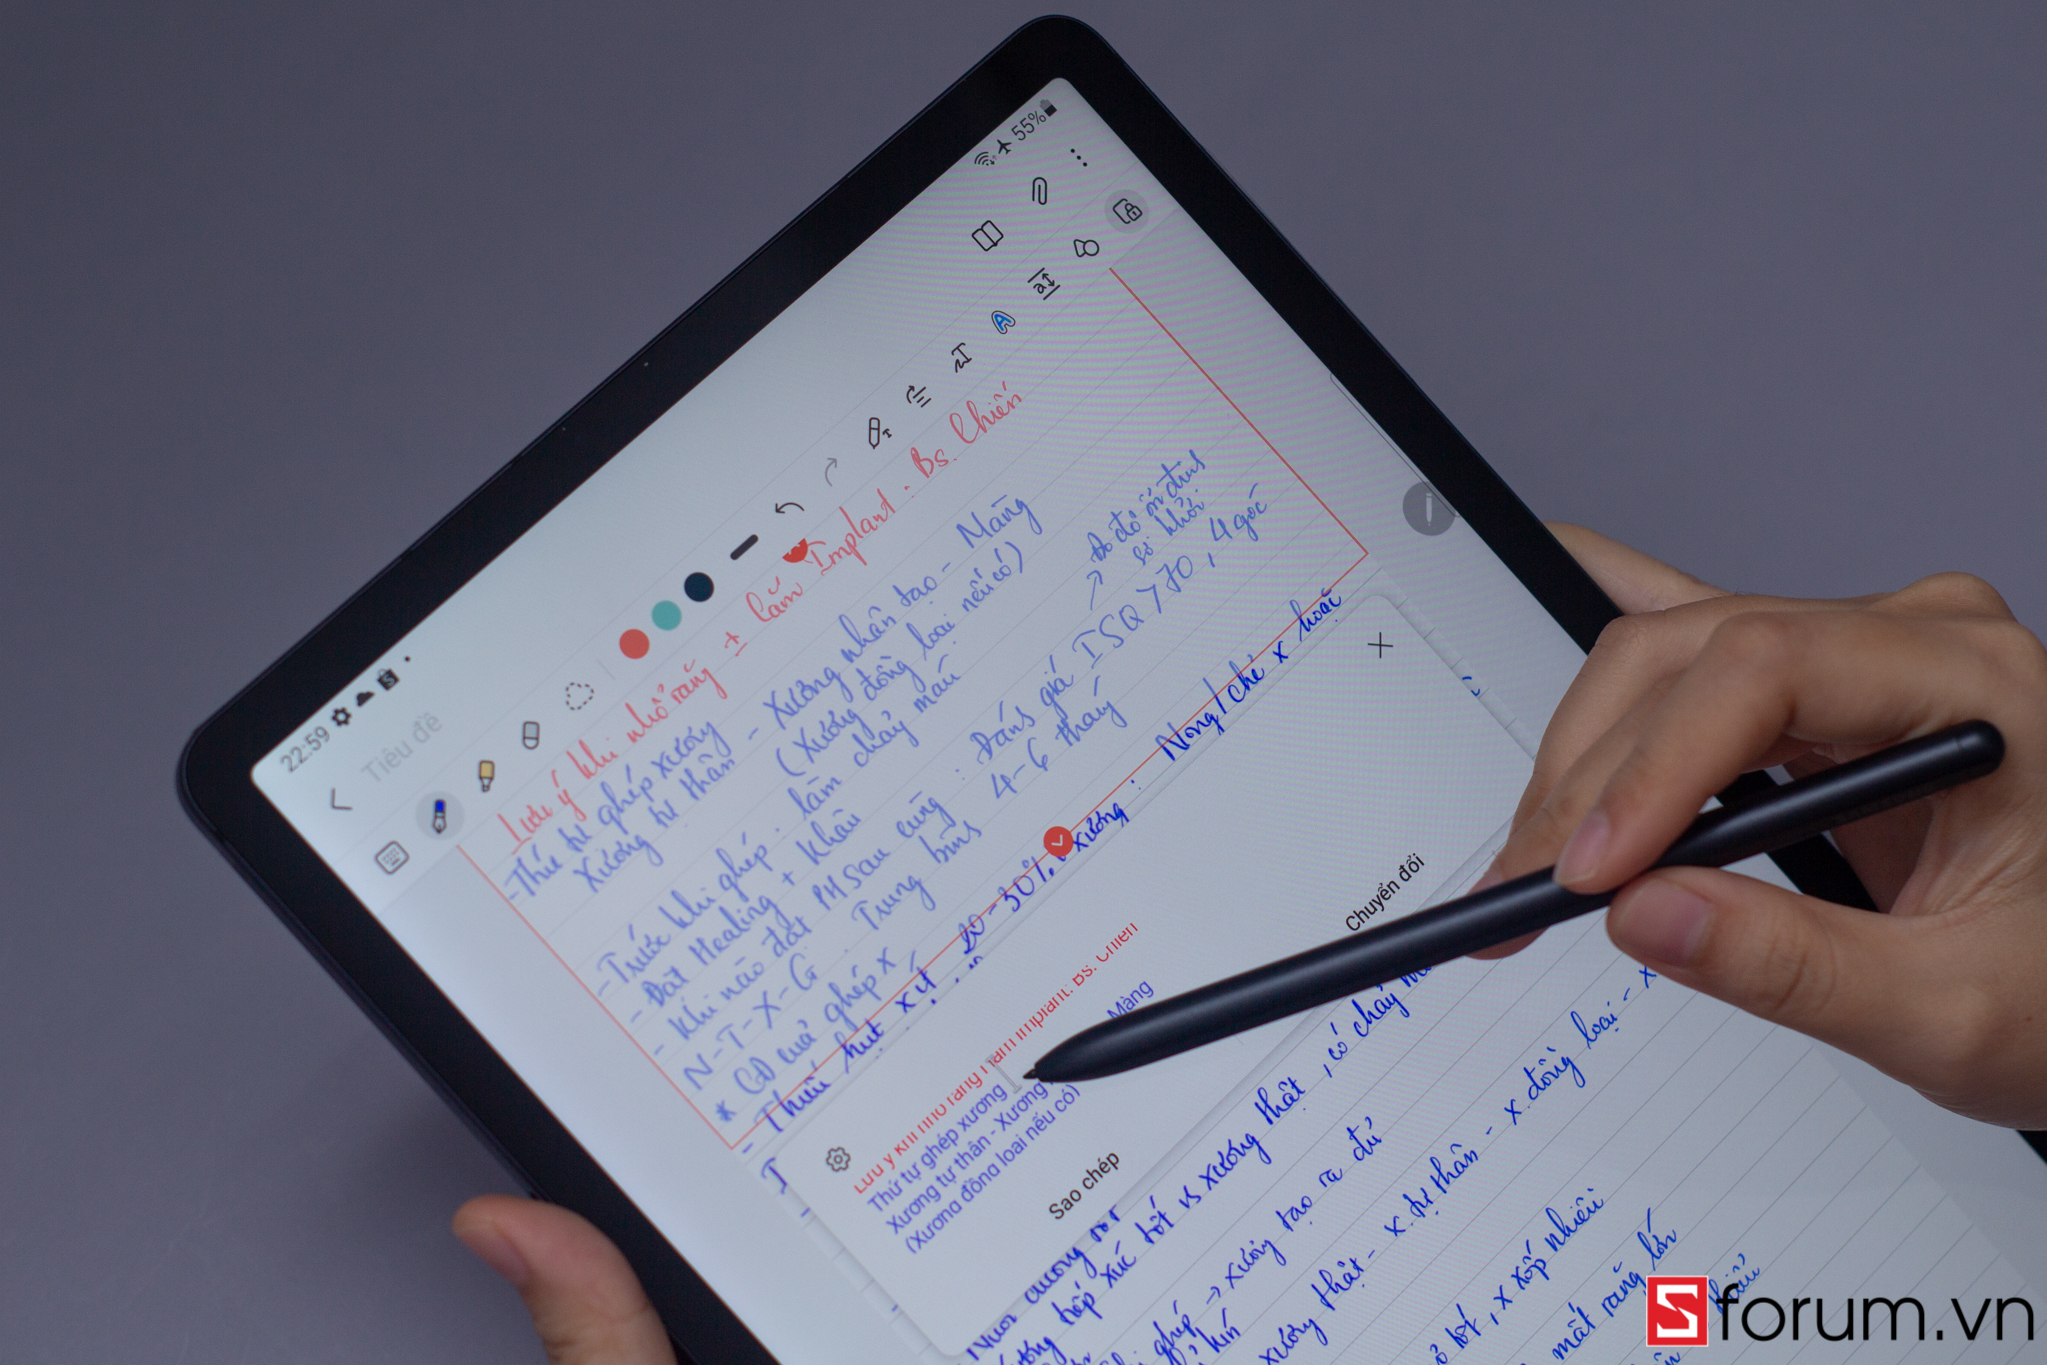 22:59
55%
Tiêu đề
Lưu ý khi nhổ răng ± làm Implant. Bs. Chiến
- Thứ tự ghép xương
Xương tự thân - Xương nhân tạo - Màng
(Xương đồng loại nếu có)
- Trước khi ghép: làm chảy máu
- Đặt Healing + khâu
- Khi nào đặt PH sau cùng: Đánh giá ISQ > 70, 4 góc
→ đo độ ổn định
N-T-X-G. Trung bình 4-6 tháng
* CĐ của ghép x
- Thiếu hụt x ít 20-30% xương: Nong/chẻ x hoặc
Lưu ý khi nhổ răng ± làm Implant: Bs. Chiến
Thứ tự ghép xương
Xương tự thân - Xương Màng
(Xương đồng loại nếu có)
Sao chép
Chuyển đổi
tiếp xúc tốt vs xương thật, có chảy
ghép → xương tạo ra đủ
xương thật - x. tự thân - x. đồng loại - x
tốt, x xốp nhiều
mất răng lớn
Sforum.vn